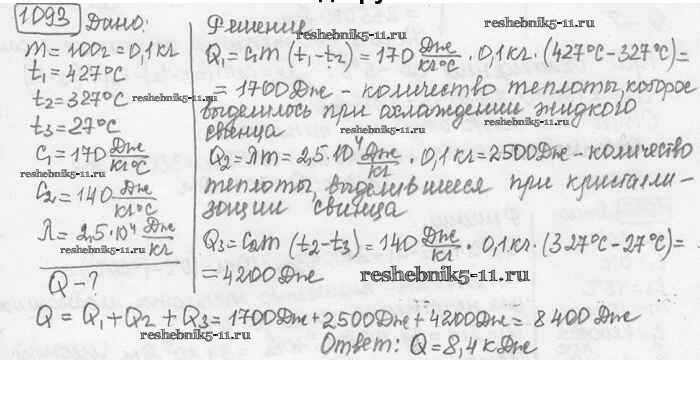 1093 Дано:
m = 100г = 0,1 кг
t₁ = 427°C
t₂ = 327°C
t₃ = 27°C
c₁ = 170 Дж/кг°C
c₂ = 140 Дж/кг°C
λ = 2,5·10⁴ Дж/кг
Q - ?
Решение
Q₁ = c₁m (t₁ - t₂) = 170 Дж/кг°C · 0,1 кг · (427°C - 327°C) =
= 1700 Дж - количество теплоты, которое
выделилось при охлаждении жидкого
свинца
Q₂ = λm = 2,5·10⁴ Дж/кг · 0,1 кг = 2500 Дж - количество
теплоты, выделившееся при кристалли-
зации свинца
Q₃ = c₂m (t₂ - t₃) = 140 Дж/кг · 0,1 кг · (327°C - 27°C) =
= 4200 Дж
Q = Q₁ + Q₂ + Q₃ = 1700 Дж + 2500 Дж + 4200 Дж = 8400 Дж
Ответ: Q = 8,4 кДж
reshebnik5-11.ru
reshebnik5-11.ru
reshebnik5-11.ru
reshebnik5-11.ru
reshebnik5-11.ru
reshebnik5-11.ru
reshebnik5-11.ru
reshebnik5-11.ru
reshebnik5-11.ru